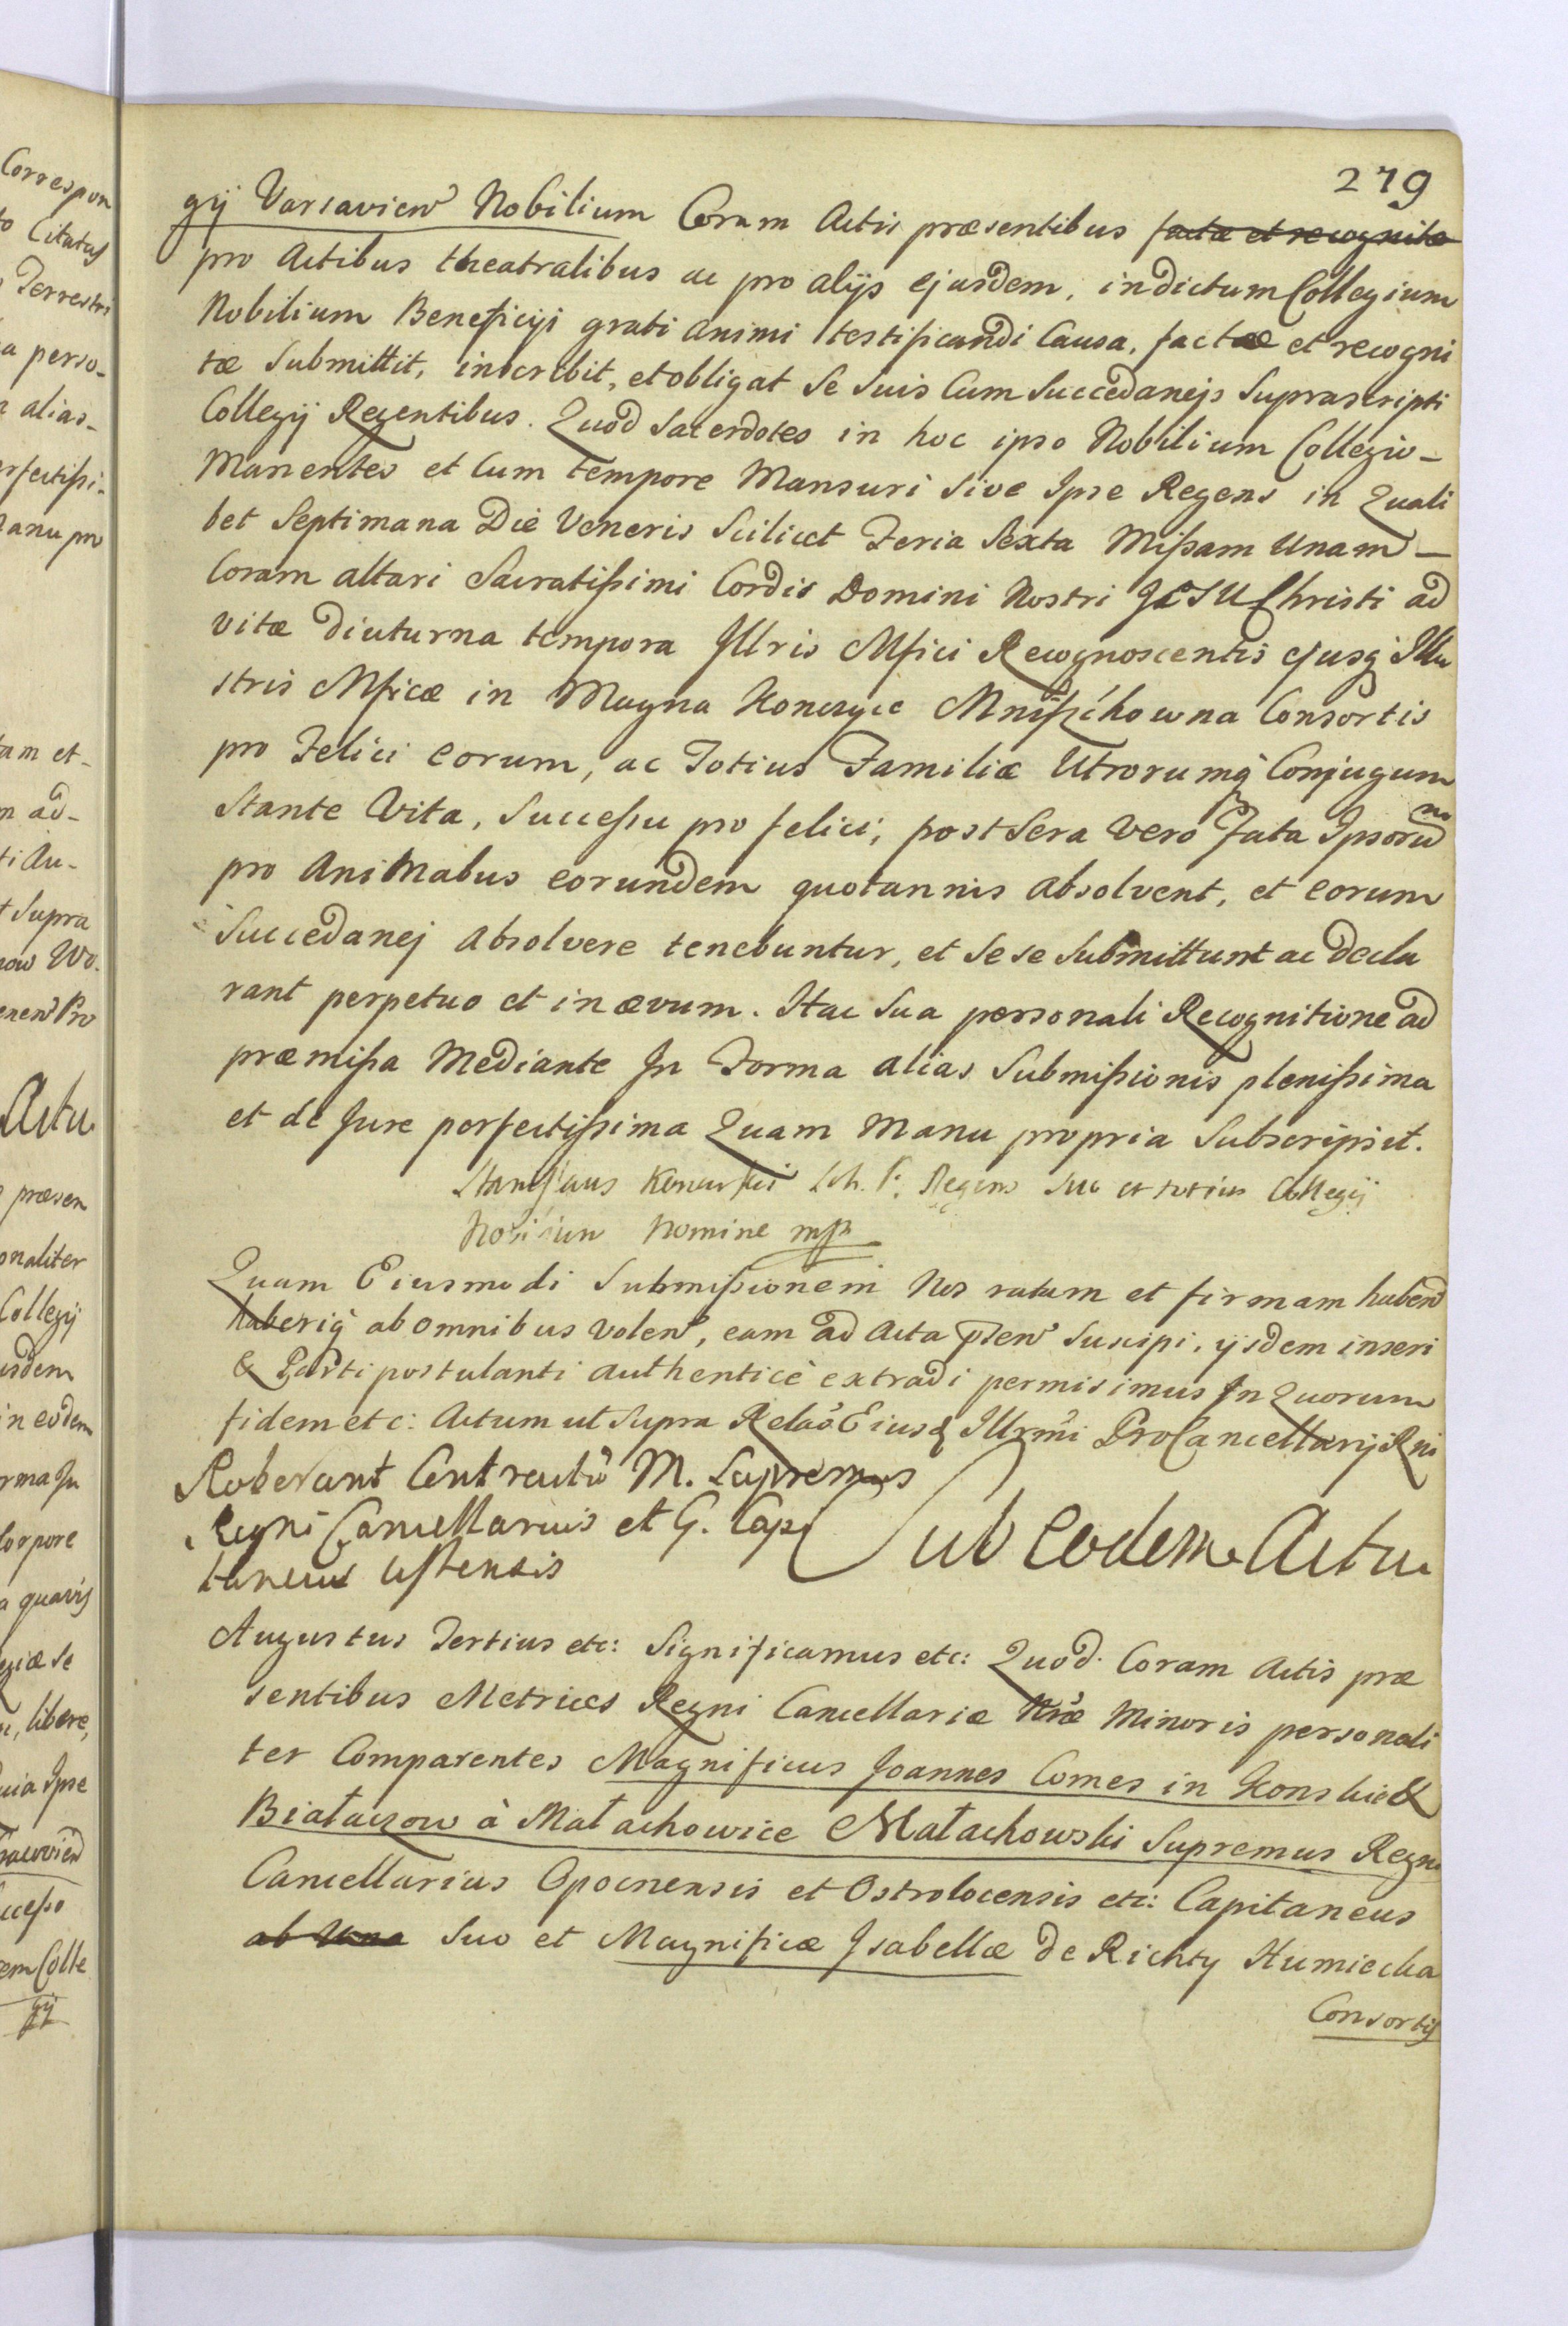 279
gij Varsavien Nobilium Coram Actis præsentibus factæ et recognitæ
pro Actibus theatralibus ac pro alijs ejusdem, in dictum Collegium
Nobilium Beneficiji grati animi testificandi Causa, factæ et recogni
tæ Submittit, inscribit, et obligat Se Suis Cum Succedanejs Suprascripti
Collegij Regentibus. Quod Sacerdotes in hoc ipso Nobilium Collegio_
Manentes et Cum tempore Mansuri Sive Ipse Regens in Quali
bet Septimana Die Veneris Scilicet Feria Sexta Mißam Unam_
Coram altari Sacratißimi Cordis Domini Nostri JESU Christi ad
vitæ diuturna tempora Jllris Mfici Recognoscentis ejusq Illu
stris Mficæ in Magna Konczyce Mniszchowna Consortis
pro Felici eorum, ac Totius Familiæ Utrorumq Conjugum
Stante Vita, Succeßu pro felici, post Sera Vero Fata Ipsorum
pro Animabus eorundem quotannis absolvent, et eorum
Succedanej absolvere tenebuntur, et Sese Submittunt ac decla
rant perpetuo et in ævum. Hac Sua personali Recognitione ad
præmißa Mediante In Forma alias Submißionis plenißima
et de Jure perfectißima Quam Manu propria Subscripsit.
Stanislaus Konarski Sch. P. Regens Suo et totius Collegij
Nobilium Nomine mp
Quam Eiusmodi Submißionem Nos ratam et firmam haben
haberiq ab omnibus volen, eam ad Acta pnen Suscipi, ijsdem inseri
& Parti postulanti Authenticè extradi permisimus In Quorum
fidem etc: Actum ut Supra Relaõ Eiusd Illrmi ProCancellarij Rni
Roberant Centreulũ M. Supremus
Regni Cancellarius et G. Capi
taneus
Sub Eodem Actu
Augustus Tertius etc: Significamus etc: Quod Coram Actis præ
sentibus Metrices Regni Cancellariæ Nræ Minoris personali
ter Comparentes Magnificus Joannes Comes in Konskie &
Białaczow à Małachowice Małachowski Supremus Regni
Cancellarius Opocnensis et Ostrolocensis etc: Capitaneus
ab Una Suo et Magnificæ Isabellæ de Richty Humiecka
Consortis